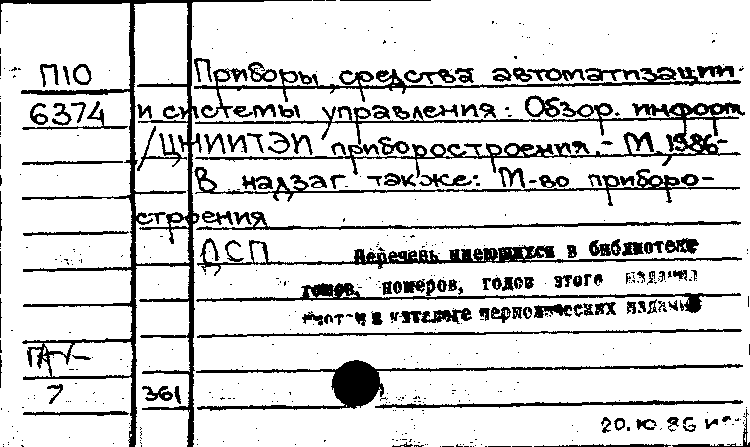 П10 Приборы, средства автоматизации
6374 и системы управления: Обзор. информ
/ЦНИИТЭИ приборостроения.- М, 1986-
В надзаг также: М-во приборо-
строения
ДСП Перечень имеющихся в библиотеке
томов, номеров, годов этого издания
каталоге периодических изданий
7 361
20.10.86